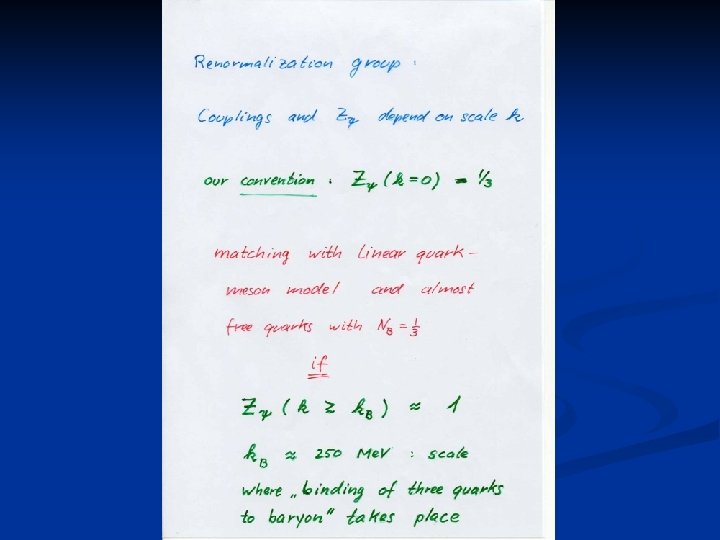 Renormalization group :
Couplings and Zψ depend on scale k
our convention : Zψ (k=0) = 1/3
matching with linear quark-
meson model and almost
free quarks with N_B = 1/3
if
Zψ ( k ≥ k_B ) ≈ 1
k_B ≈ 250 MeV : scale
where „binding of three quarks
to baryon" takes place